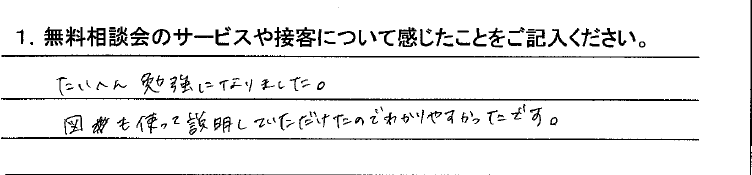 1. 無料相談会のサービスや接客について感じたことをご記入ください。
たいへん勉強になりました。
図も使って説明していただけたのでわかりやすかったです。